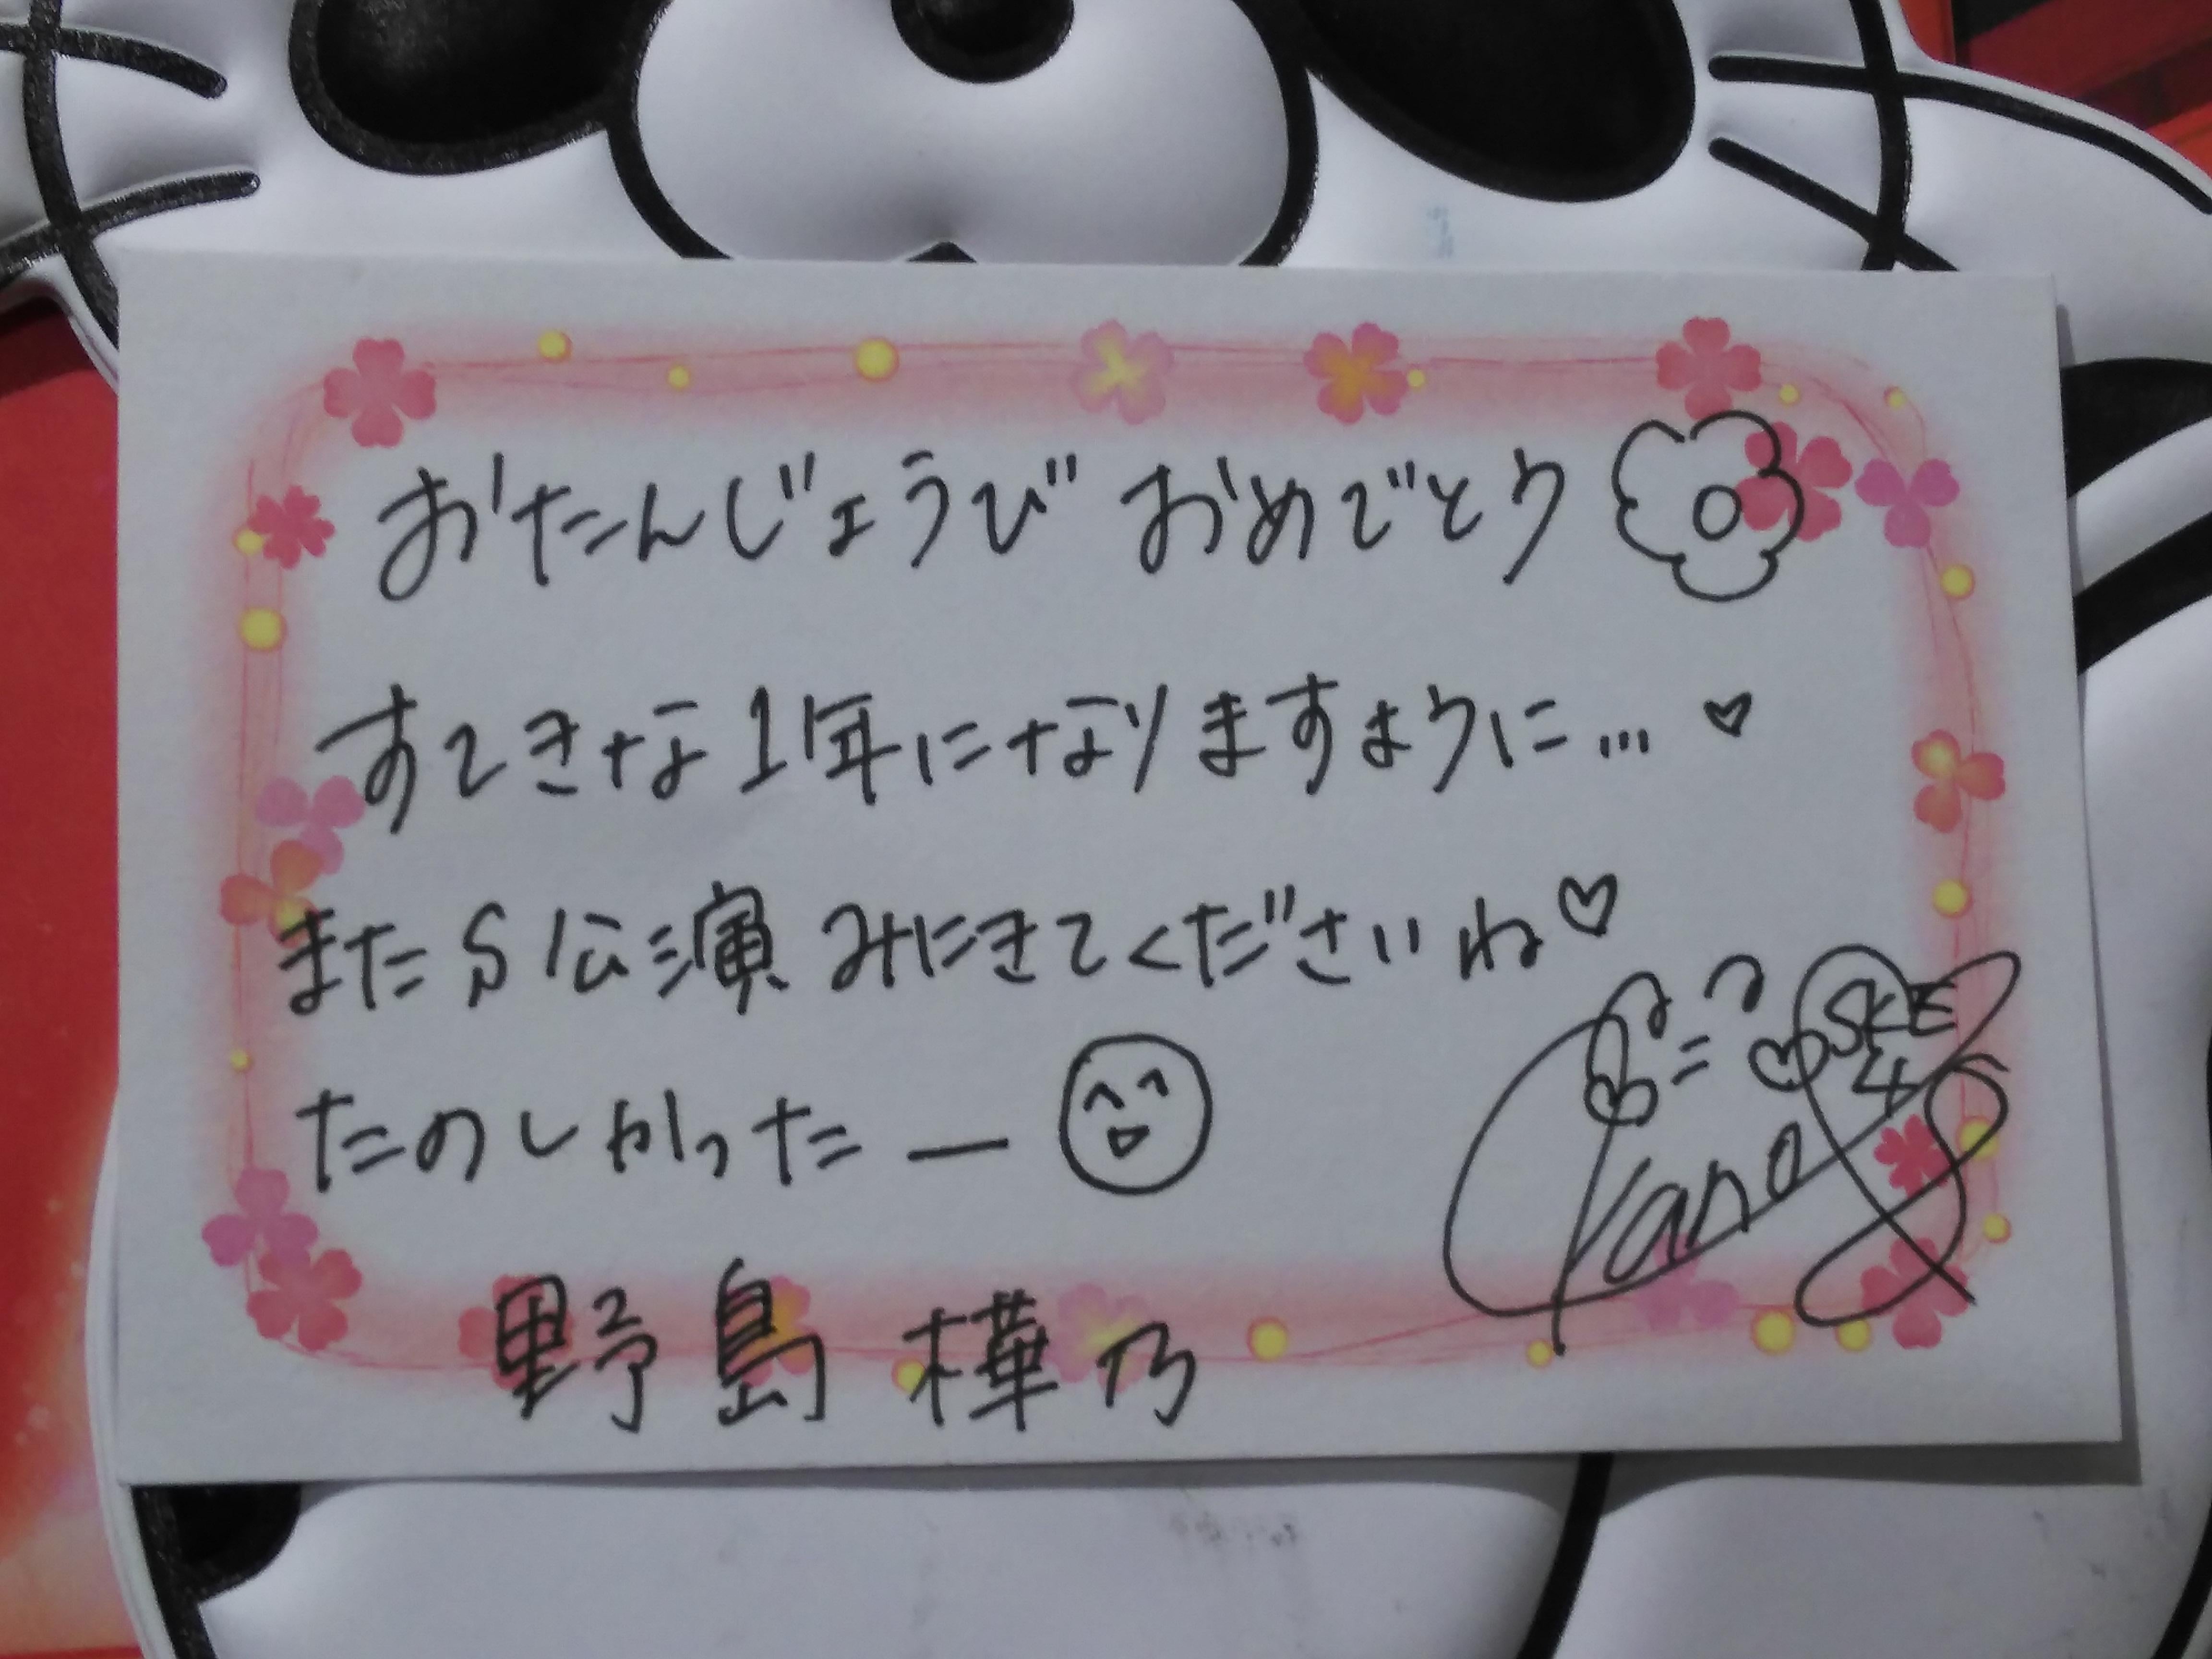 おたんじょうび おめでとう
すてきな1年になりますように…♡
またS公演みにきてくださいね♡
たのしかったー
野島樺乃
SKE
Kano